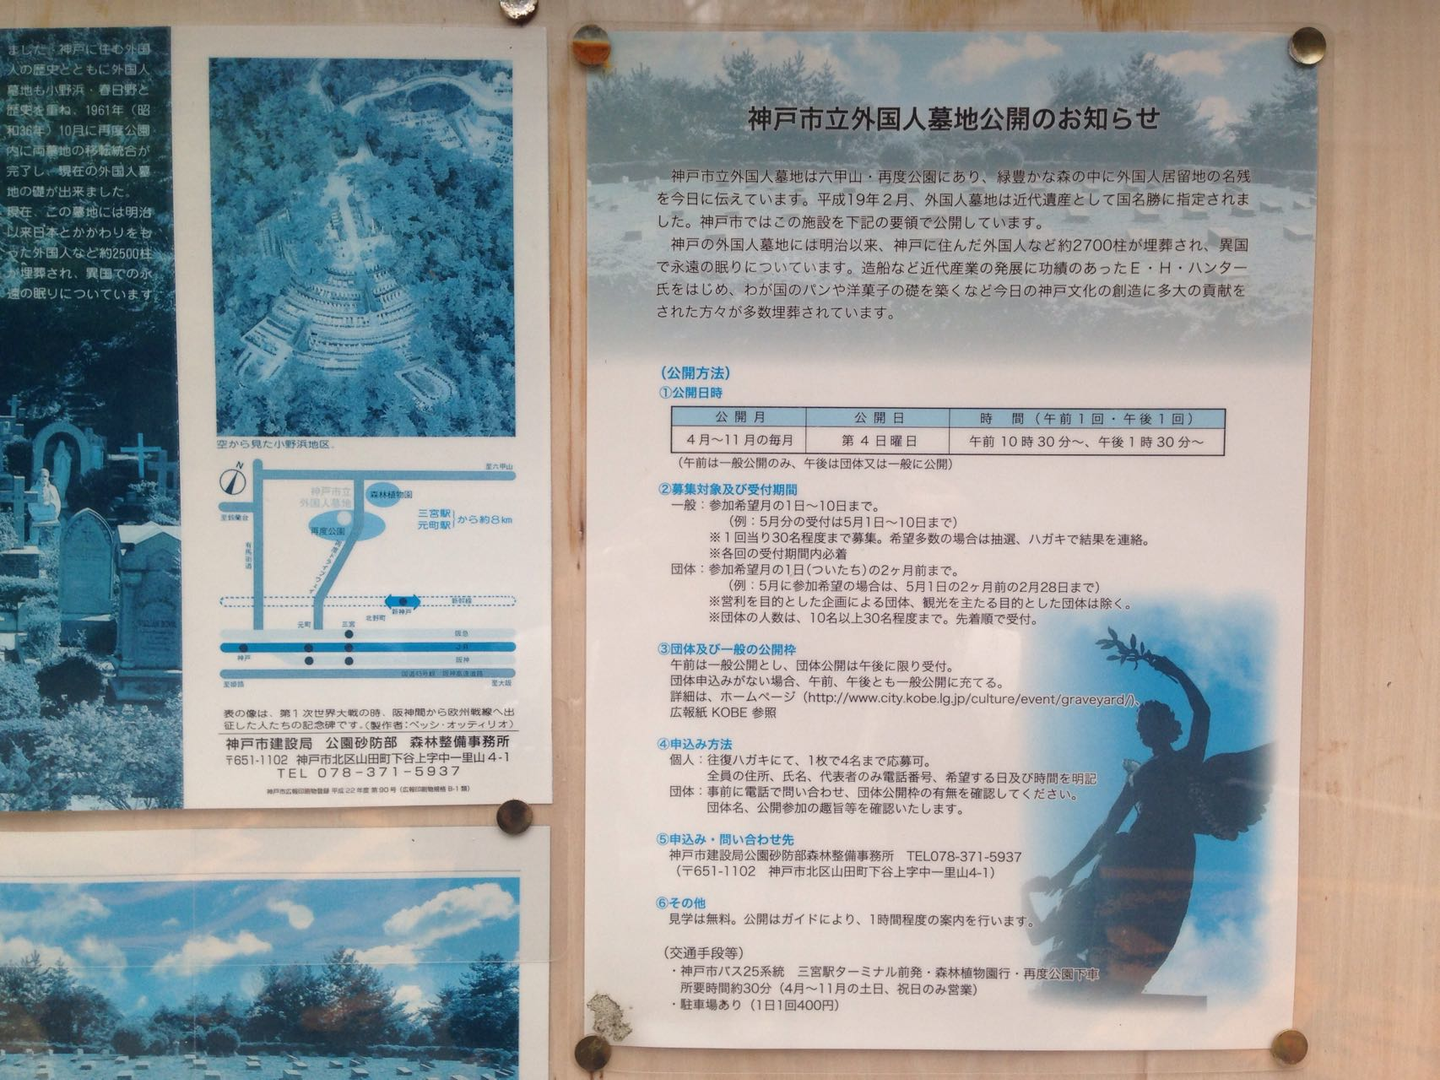 ました。神戸に住む外国
人の歴史とともに外国人
墓地も小野浜・春日野と
歴史を重ね、1961年（昭
和36年）10月に再度公園
内に両墓地の移転統合が
完了し、現在の外国人墓
地の礎が出来ました。
現在、この墓地には明治
以来日本とかかわりをも
った外国人など約2500柱
が埋葬され、異国での永
遠の眠りについています
空から見た小野浜地区。
N
至六甲山
神戸市立
外国人墓地
森林植物園
至鈴蘭台
再度公園
三宮駅
元町駅
から約8km
有馬街道
新幹線
新神戸
北野町
元町
三宮
阪急
JR
神戸
阪神
至姫路
至大阪
表の像は、第1次世界大戦の時、阪神間から欧州戦線へ出
征した人たちの記念碑です。(製作者:ペッシ・オッティリオ)
神戸市建設局　公園砂防部　森林整備事務所
〒651-1102　神戸市北区山田町下谷上字中一里山4-1
TEL 078-371-5937
神戸市広報印刷物登録 平成22年度 第90号（広報印刷物規格 B-1類）
神戸市立外国人墓地公開のお知らせ
神戸市立外国人墓地は六甲山・再度公園にあり、緑豊かな森の中に外国人居留地の名残
を今日に伝えています。平成19年2月、外国人墓地は近代遺産として国名勝に指定されま
した。神戸市ではこの施設を下記の要領で公開しています。
神戸の外国人墓地には明治以来、神戸に住んだ外国人など約2700柱が埋葬され、異国
で永遠の眠りについています。造船など近代産業の発展に功績のあったE・H・ハンター
氏をはじめ、わが国のパンや洋菓子の礎を築くなど今日の神戸文化の創造に多大の貢献を
された方々が多数埋葬されています。
（公開方法）
①公開日時
公開月　公開日　時　間（午前1回・午後1回）
4月～11月の毎月　第4日曜日　午前10時30分～、午後1時30分～
（午前は一般公開のみ、午後は団体又は一般に公開）
②募集対象及び受付期間
一般：参加希望月の1日～10日まで。
（例：5月分の受付は5月1日～10日まで）
※1回当り30名程度まで募集。希望多数の場合は抽選、ハガキで結果を連絡。
※各回の受付期間内必着
団体：参加希望月の1日（ついたち）の2ヶ月前まで。
（例：5月に参加希望の場合は、5月1日の2ヶ月前の2月28日まで）
※営利を目的とした企画による団体、観光を主たる目的とした団体は除く。
※団体の人数は、10名以上30名程度まで。先着順で受付。
③団体及び一般の公開枠
午前は一般公開とし、団体公開は午後に限り受付。
団体申込みがない場合、午前、午後とも一般公開に充てる。
詳細は、ホームページ（http://www.city.kobe.lg.jp/culture/event/graveyard/）、
広報紙 KOBE 参照
④申込み方法
個人：往復ハガキにて、1枚で4名まで応募可。
全員の住所、氏名、代表者のみ電話番号、希望する日及び時間を明記
団体：事前に電話で問い合わせ、団体公開枠の有無を確認してください。
団体名、公開参加の趣旨等を確認いたします。
⑤申込み・問い合わせ先
神戸市建設局公園砂防部森林整備事務所　TEL078-371-5937
（〒651-1102　神戸市北区山田町下谷上字中一里山4-1）
⑥その他
見学は無料。公開はガイドにより、1時間程度の案内を行います。
（交通手段等）
・神戸市バス25系統　三宮駅ターミナル前発・森林植物園行・再度公園下車
所要時間約30分（4月～11月の土日、祝日のみ営業）
・駐車場あり（1日1回400円）